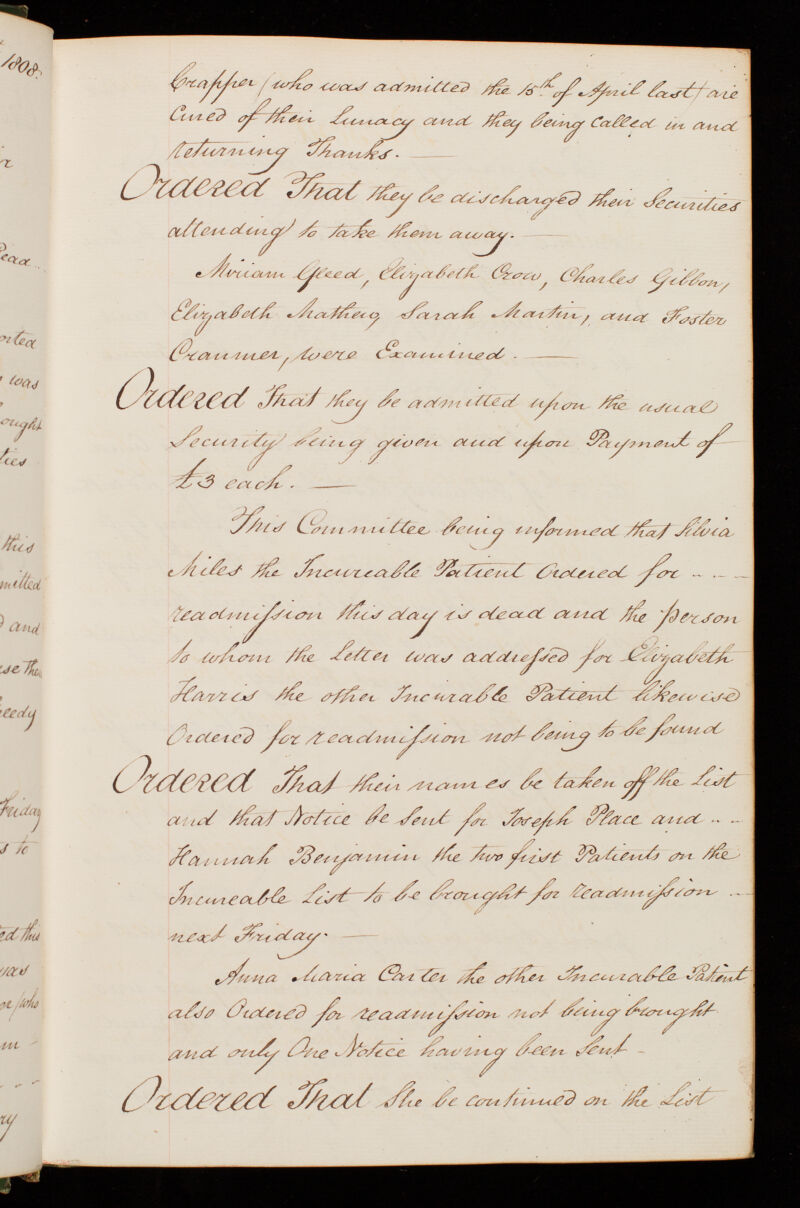 1808
Crapper (who was admitted the 15th of April last) are
Cured of their Lunacy and they being Called in and
returning Thanks. —
Ordered That they be discharged their Securities
attending to take them away. —
Miriam Gleed, Elizabeth Crow, Charles Gibbon,
Elizabeth Sarah Martin, and Foster
Cranmer, were Examined. —
Ordered That they be admitted upon the usual
Security being given and upon Payment of
£3 each. —
This Committee being informed that Silvia
Miles the Incureable Patient Ordered for .. — -
readmiſsion this day is dead and the person
to whom the Letter was addreſsed for Elizabeth
Harris the other Incurable Patient likewise
Ordered for readmiſsion not being to be found
Ordered That their names be taken off the List
and that Notice be Sent for Joseph Place and .. -
Hannah Benjamin the two first Patients on the
Incureable List to be brought for readmiſsion ..
next Friday. —
Anna Maria Carter the other Incurable Patient
also Ordered for readmiſsion not being brought
and only One Notice having been Sent -
Ordered That She be continued on the List
was
ought
ties
this
mitted
and
Friday
s to
was